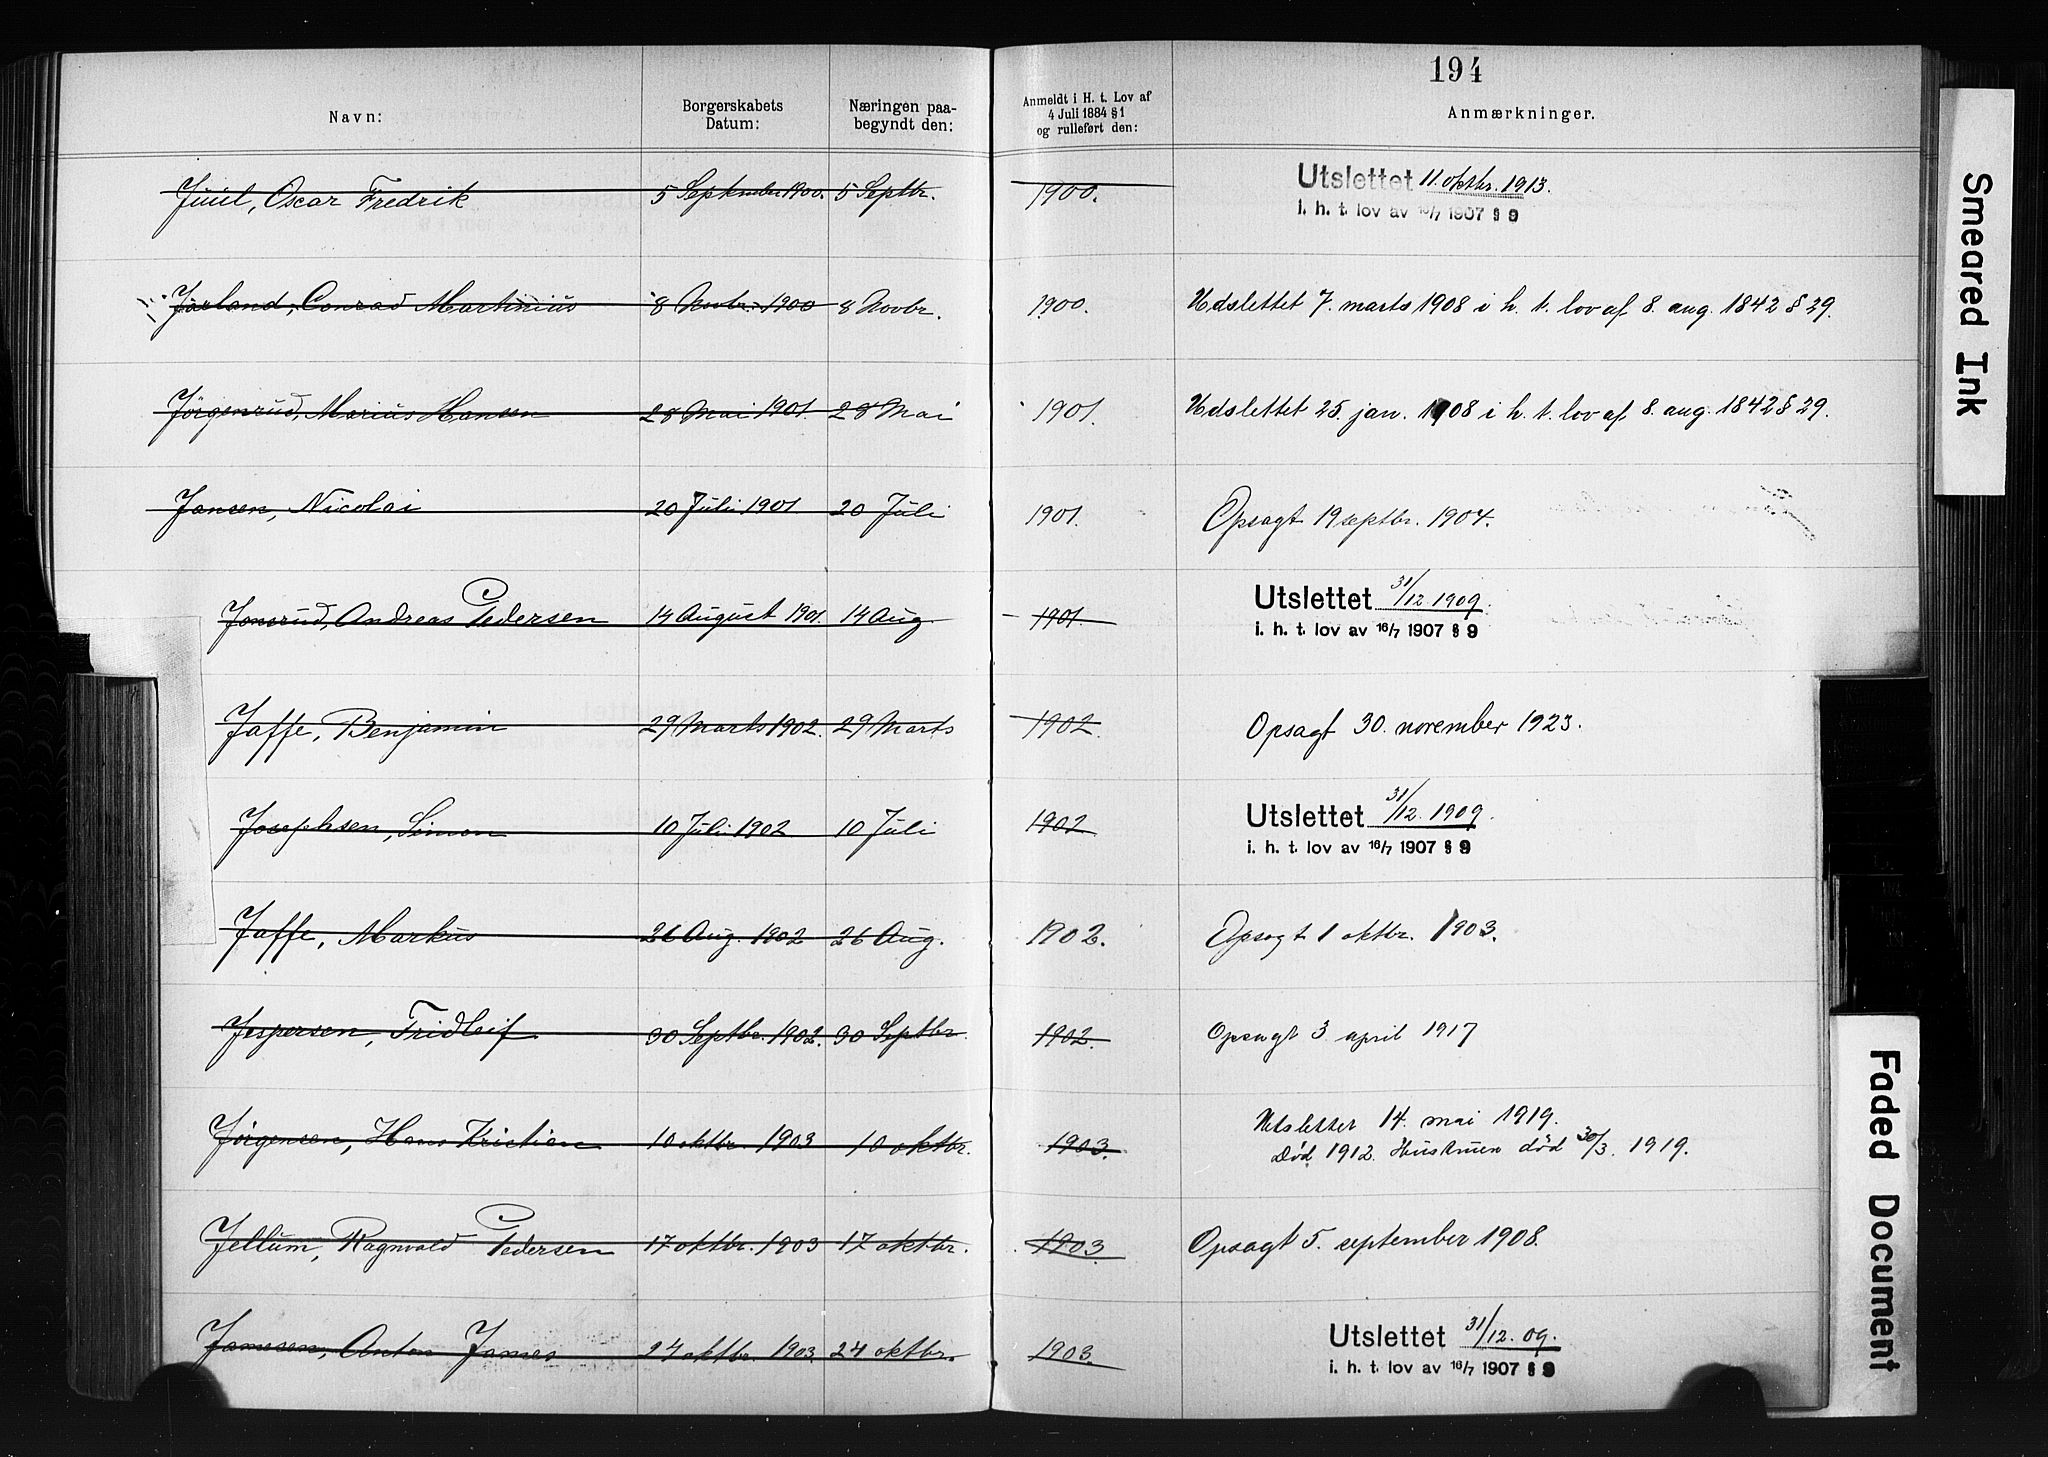 194
Navn:
Borgerskabets Datum:
Næringen paabegyndt den:
Anmeldt i H. t. Lov af 4 Juli 1884 § 1 og rulleført den:
Anmærkninger.
Juul, Oscar Fredrik 5 September 1900. 5 Septbr. 1900. Utslettet 11. oktbr. 1913.
i. h. t. lov av 16/7 1907 § 9
Jørland, Conrad Martinius 8 Novbr. 1900 8 Novbr. 1900. Udslettet 7. marts 1908 i h. t. lov af 8. aug. 1842 § 29.
Jörgenrud, Marius Hansen 28 Mai 1901. 28 Mai 1901. Udslettet 25. jan. 1908 i h. t. lov af 8. aug. 1842 § 29.
Jansen, Nicolai 20 Juli 1901. 20 Juli 1901. Opsagt 19 septbr. 1904.
Jonsrud, Andreas Pedersen 14 August 1901. 14 Aug. 1901. Utslettet 31/12 1909.
i. h. t. lov av 16/7 1907 § 9
Jaffe, Benjamin 29 Marts 1902. 29 Marts 1902. Opsagt 30. november 1923.
Josephsen, Simon 10 Juli 1902 10 Juli 1902 Utslettet 31/12. 1909.
i. h. t. lov av 16/7 1907 § 9
Jaffe, Markus 26 Aug. 1902 26 Aug. 1902. Opsagt 1 oktbr. 1903.
Jespersen, Fridleif 30 Septbr. 1902. 30 Septbr. 1902. Opsagt 3. april 1917
Jörgensen, Hans Kristian 10 oktbr. 1903 10 oktbr. 1903. Utslettet 14. mai 1919.
Död 1912. Hustruen död 30/3. 1919.
Jellum, Ragnvald Pedersen 17 oktbr. 1903 17 oktbr. 1903. Opsagt 5. september 1908.
Jamesen, Anton James 24 oktbr. 1903 24 oktbr. 1903. Utslettet 31/12. 09.
i. h. t. lov av 16/7 1907 § 9
Smeared Ink
Faded Document